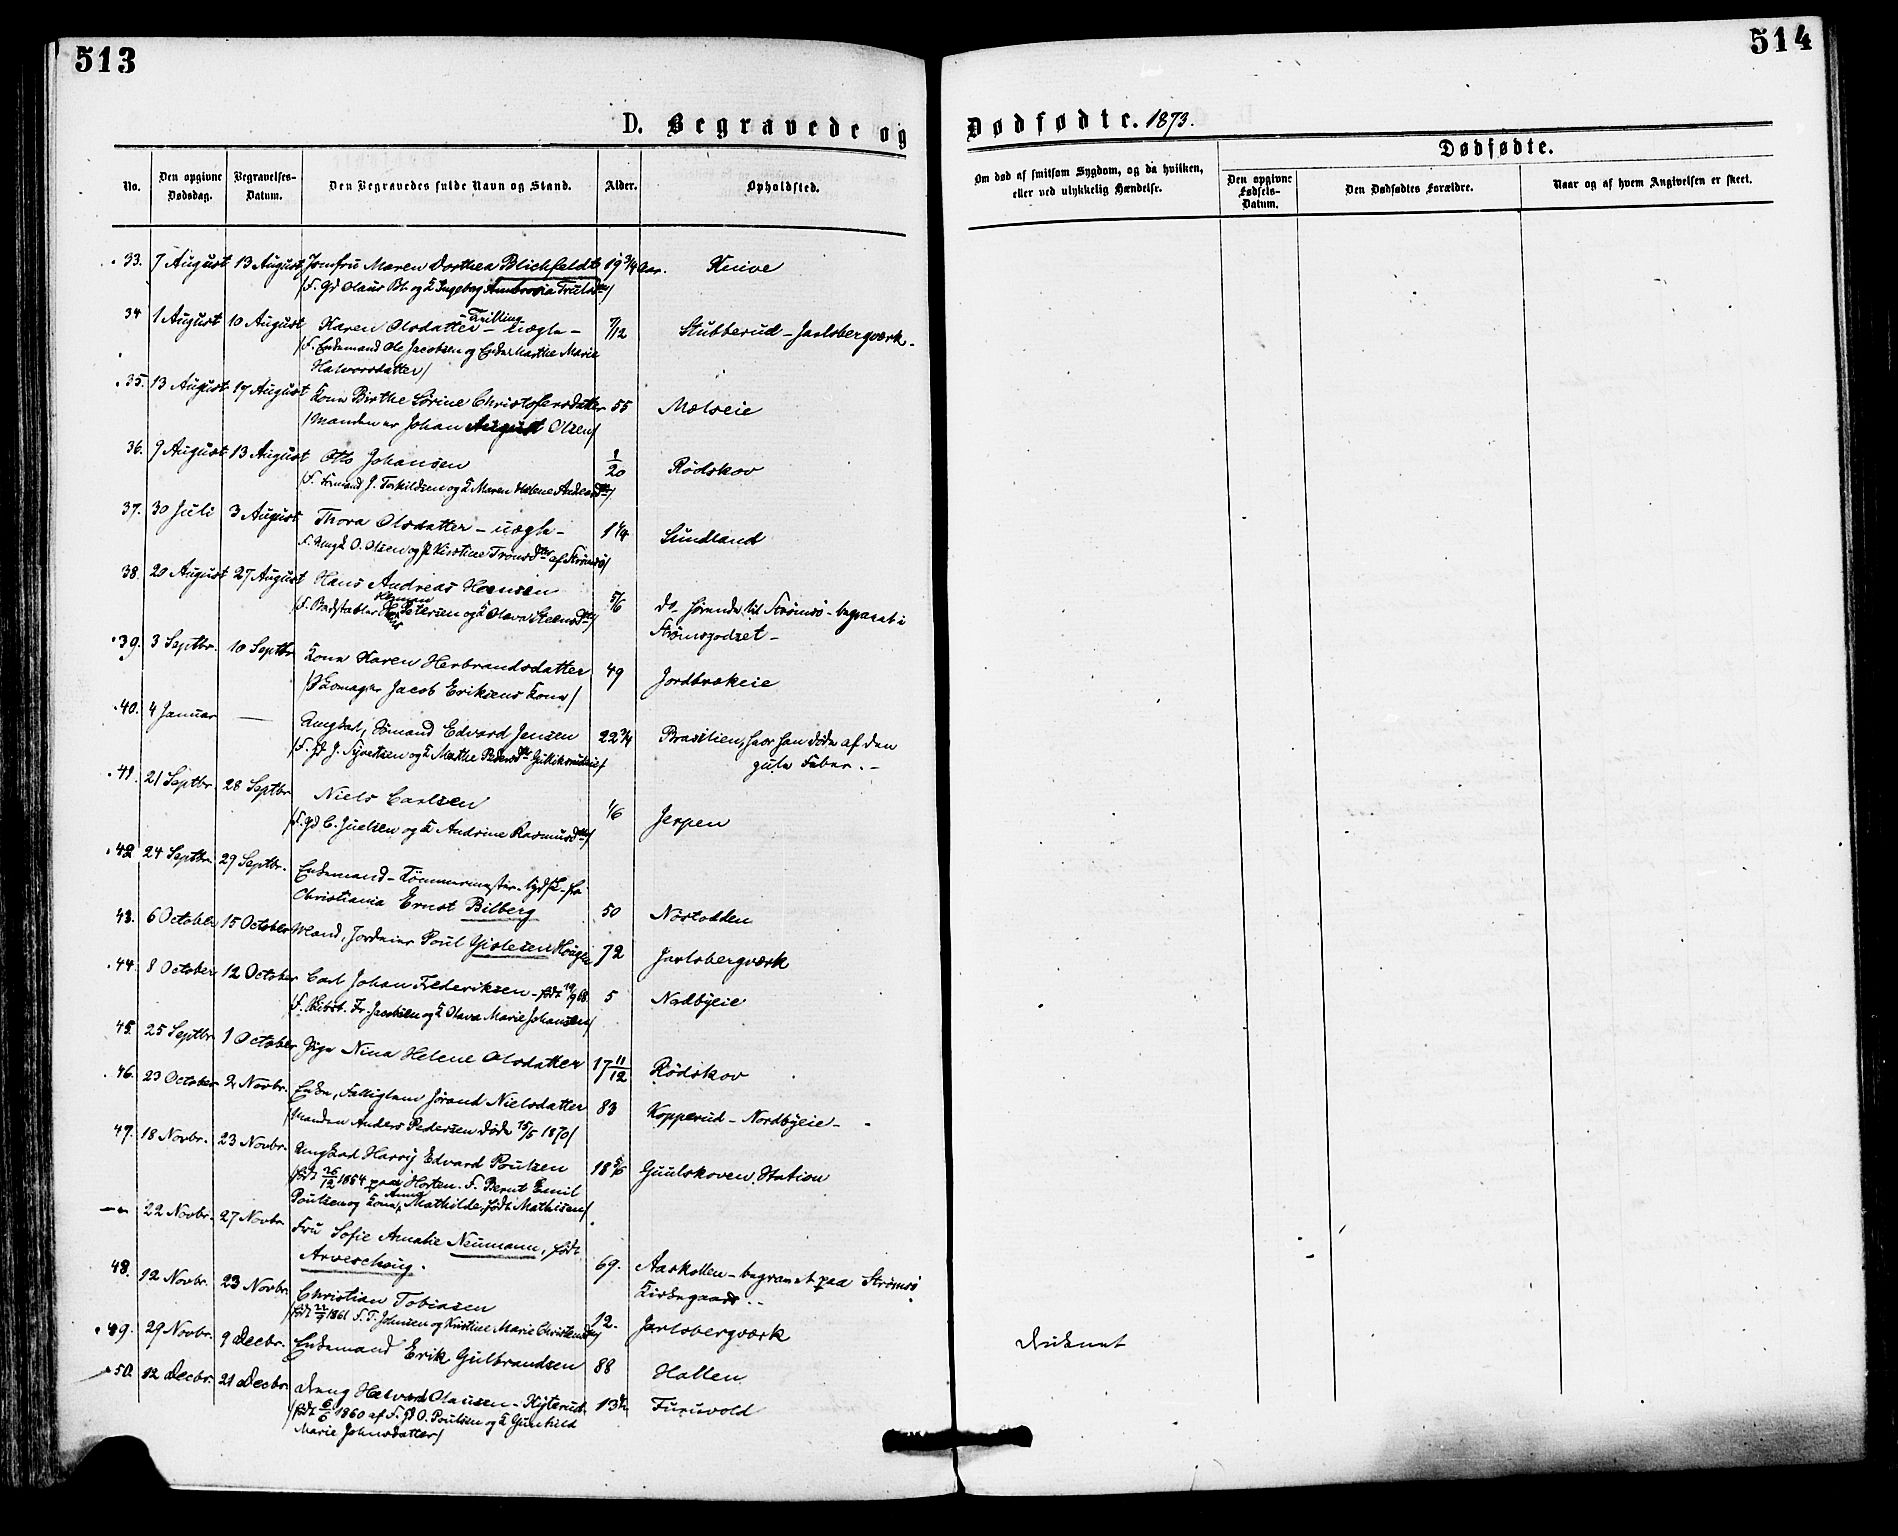 513
514
D. Begravede og Dødfødte. 1873.
No.
Den opgivne Dødsdag.
Begravelses-Datum.
Den Begravedes fulde Navn og Stand.
Alder.
Opholdsted.
Om død af smitsom Sygdom, og da hvilken, eller ved ulykkelig Hændelse.
Dødfødte.
Den opgivne Fødsels-Datum.
Den Dødfødtes Forældre.
Naar og af hvem Angivelsen er skeet.
33. 7 August 13 August Jomfru Maren Dorthea Blichfeldt 19 3/4 Aar. Knive
/F. Gd Olaus Bl. og K Ingeborg Ambrosia Trulsdtr/
34 1 August 10 August Karen Olsdatter - Trilling - uægte - 7/12 Stubberud - Jarlsbergværk -
/F. Enkemand Ole Jacobsen og Enke Marthe Marie
Halvorsdatter/
35. 13 August 17 August Kone Birthe Sørine Christofersdatter 55 Mælseie
/Manden er Johan August Olsen/
36. 9 August 13 August Otto Johansen 1/20 Rødskov
/F. Formand J. Torkildsen og K Maren Helene Andersdtr/
37. 30 Juli 3 August Thora Olsdatter - uægte - 1 1/4 Sundland
F. Ungk O. Olsen og P Kirstine Tronsdtr af Strømsø/
38. 20 August 27 August Hans Andreas Hansen 5/6 do - hørende til Strømsø - begravet i
Strømsgodset -
/F. Petersen og K Olava Steensdtr/
39. 3 Septbr. 10 Septbr Kone Karen Herbrandsdatter 49 Jordbrekeie
/Skomager Jacob Eriksens Kone/
40. 4 Januar — Ungkarl, Sømand Edvard Jensen 22 3/4 Brasilien, hvor han døde af den
gule Feber. -
/F. Gd J. Syvertsen og K Marthe Pedersdtr
41. 21 Septbr 28 Septbr Niels Carlsen 1/6 Jerpen
/F. Gd C. Juelsen og K Andrine Rasmusdtr/
42 24 Septbr. 29 Septbr. Enkemand - Tømmermester -
Christiania Ernst Bilberg 50 Nøstodden
43. 6 October 15 October Mand, Jordeier Poul Gislesen Hougen 72 Jarlsbergværk
44. 8 October 12 October Carl Johan Frederiksen - født 19/9 68. 5 Nordbyeie
Fr. Jacobsen og K Olava Marie Johansen/
45. 25 Septbr 1 October Pige Nina Helene Olsdatter 17 11/12 Rødskov
46. 23 October 2 Novbr. Enke, Fattiglem Jørand Nielsdatter 83 Kopperud - Nordbyeie -
/Manden Anders Pedersen døde 15/5 1870/
47. 18 Novbr. 23 Novbr. Ungkarl Harry Edvard Poulsen 18 5/6 Guulskoven Station
/født 26/12 1854 paa Horten. F. Bernt Emil
Poulsen og Kone, Anna Mathilde, født Mathisen/
— 22 Novbr. 27 Novbr Fru Sofie Amalie Neumann, født
Arveschoug. 69. Aaskollen - begravet paa Strømsø
Kirkegaard. -
48. 12 Novbr. 23 Novbr. Christian Tobiasen 12. Jarlsbergværk
/født 22/9 1861 F. T. Johnsen og Kristine Marie
49. 29 Novbr. 9 Decbr. Enkemand Erik Gulbrandsen 88 Hallen
Druknet
50. 12 Decbr. 21 Decbr. Dreng Halvard Olausen - Kjøterud 13 1/2 Furuvold
/født 6/6 1860 af F. Gd O. Poulsen og K Gunhild
Marie Johnsdatter/